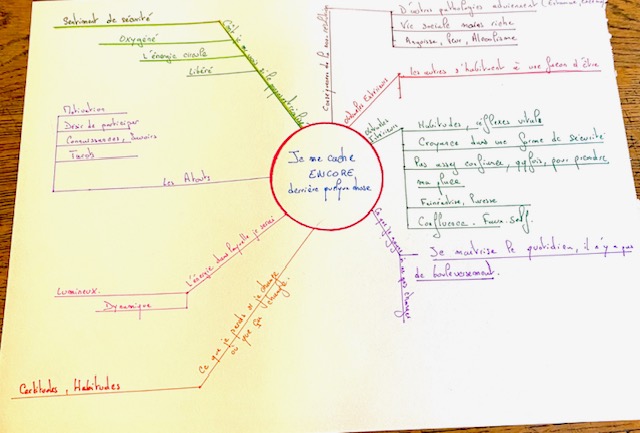 Je me cache
ENCORE
derrière quelque chose
Sentiment de sécurité
Oxygéné
L'énergie circule
Libéré
Motivation
Désir de participer
Connaissances, Savoirs
Tarots
Les Atouts
L'énergie dans laquelle je serai
Lumineux.
Dynamique
Ce que je perds si je change
où que ça change.
Certitudes, Habitudes
Conséquences de la non résolution
D'autres pathologies adviennent
Vie sociale moins riche
Angoisse, Peur, Alcoolisme
obstacles Extérieurs
Les autres s'habituent à une façon d'être
obstacles
Intérieurs
Habitudes, réflexes vitale
Croyance dans une forme de sécurité
Pas assez confiance, qqfois, pour prendre
ma place
Fainéantise, Paresse
Confluence. Faux-self.
Ce que je gagne à ne pas changer
Je maîtrise le quotidien, il n'y a pas
de bouleversement.